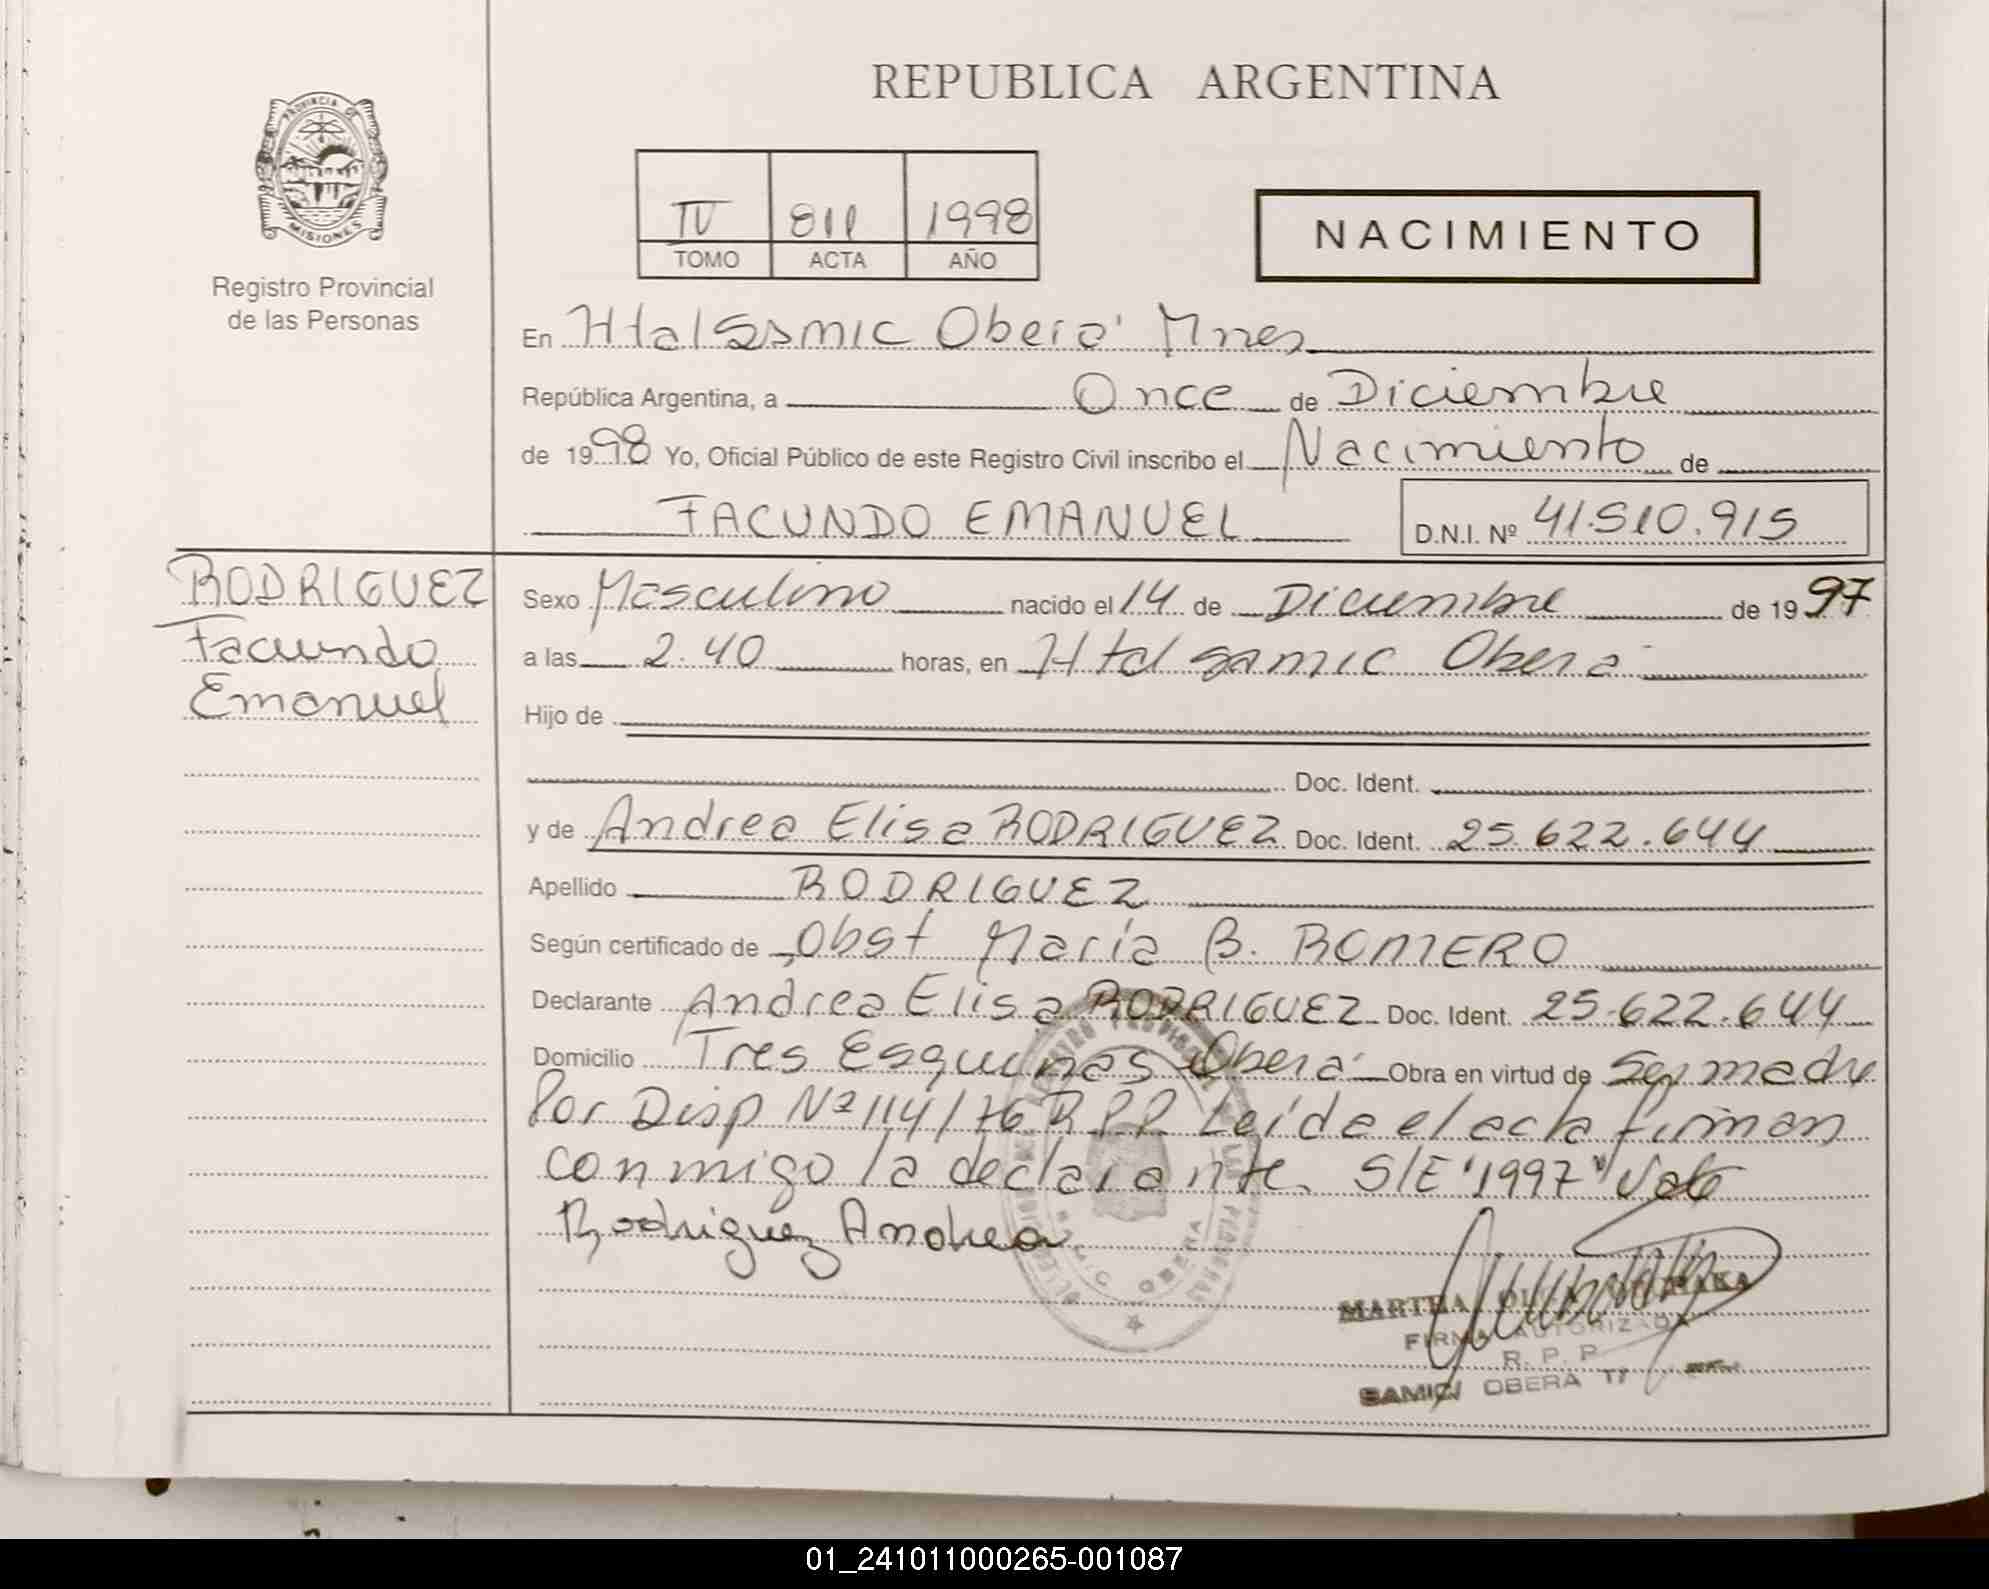 REPUBLICA ARGENTINA
PROVINCIA DE
MISIONES
Registro Provincial
de las Personas
IV 811 1998
TOMO ACTA AÑO
NACIMIENTO
En Htal Samic Oberá Mnes
República Argentina, a Once de Diciembre
de 1998 Yo, Oficial Público de este Registro Civil inscribo el Nacimiento de
FACUNDO EMANUEL D.N.I. Nº 41.510.915
RODRIGUEZ
Facundo
Emanuel
Sexo Masculino nacido el 14 de Diciembre de 1997
a las 2.40 horas, en Htal Samic Oberá
Hijo de
Doc. Ident.
y de Andrea Elisa RODRIGUEZ Doc. Ident. 25.622.644
Apellido RODRIGUEZ
Según certificado de Obst María B. ROMERO
Declarante Andrea Elisa RODRIGUEZ Doc. Ident. 25.622.644
Domicilio Tres Esquinas Oberá Obra en virtud de Ser madre
Por Disp Nº 114/76 R.P.P. Leída el acta firman
conmigo la declarante. S/E "1997" Vale
Rodriguez Andrea
OBERA
MARTHA
FIRMA AUTORIZADA
R. P. P.
SAMIC OBERA
01_241011000265-001087